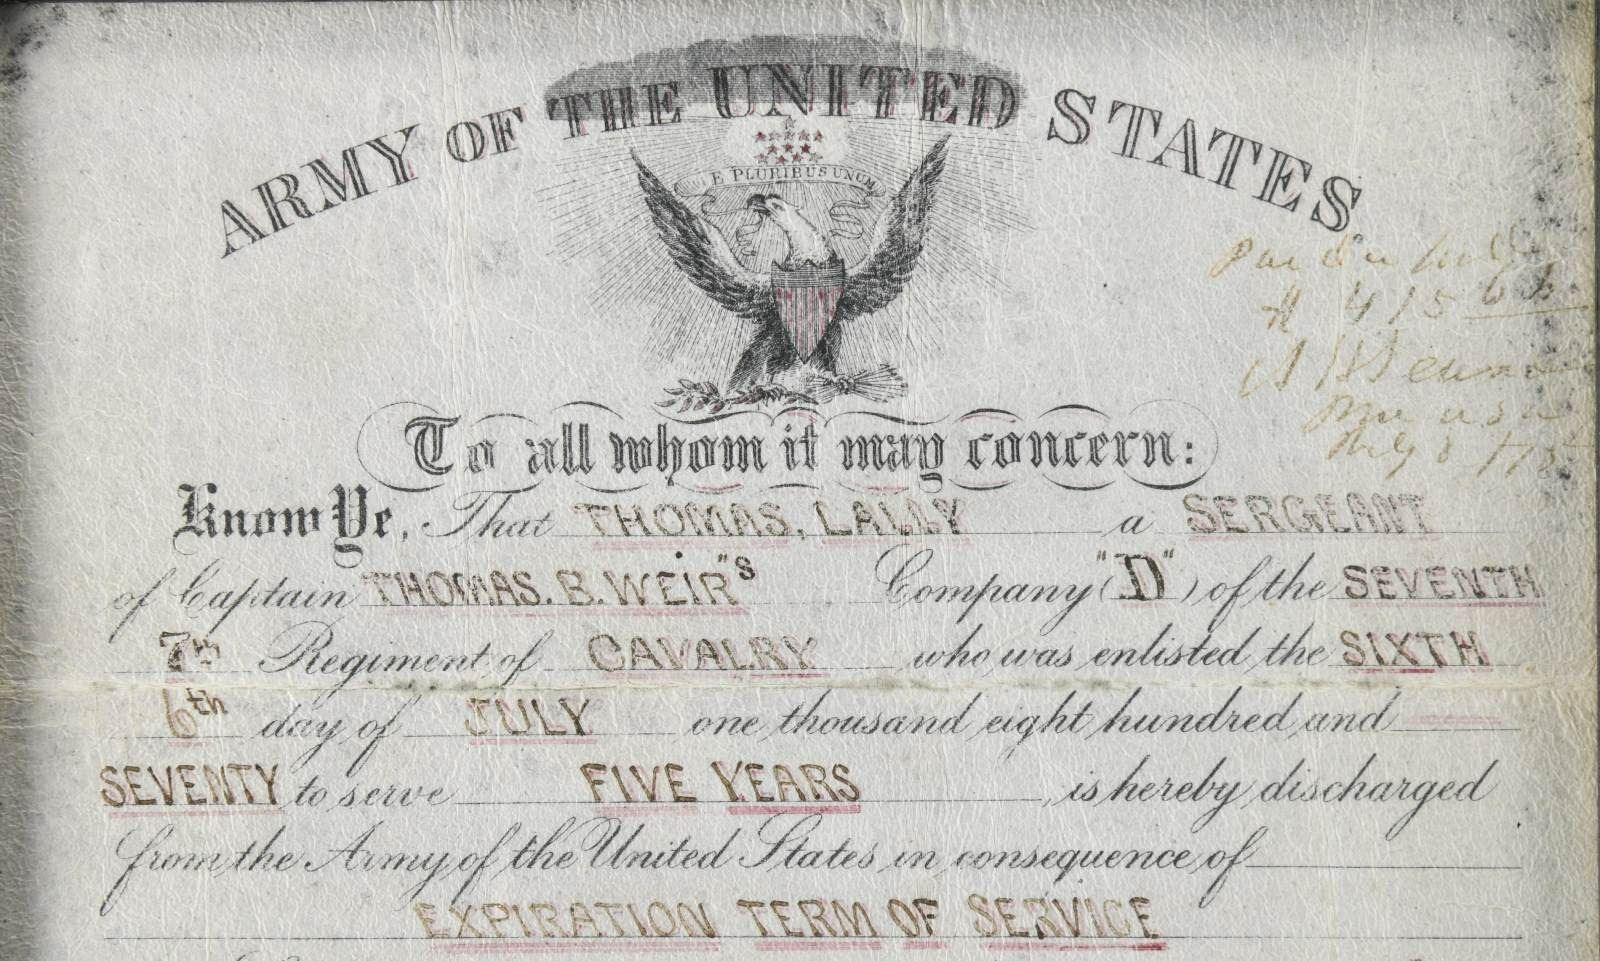 ARMY OF THE UNITED STATES.
E PLURIBUS UNUM
To all whom it may concern:
Know Ye, That THOMAS. LALLY a SERGEANT
of Captain THOMAS. B. WEIR"s Company ("D") of the SEVENTH
7th Regiment of CAVALRY who was enlisted the SIXTH
6th day of JULY one thousand eight hundred and
SEVENTY to serve FIVE YEARS, is hereby discharged
from the Army of the United States in consequence of
EXPIRATION TERM OF SERVICE